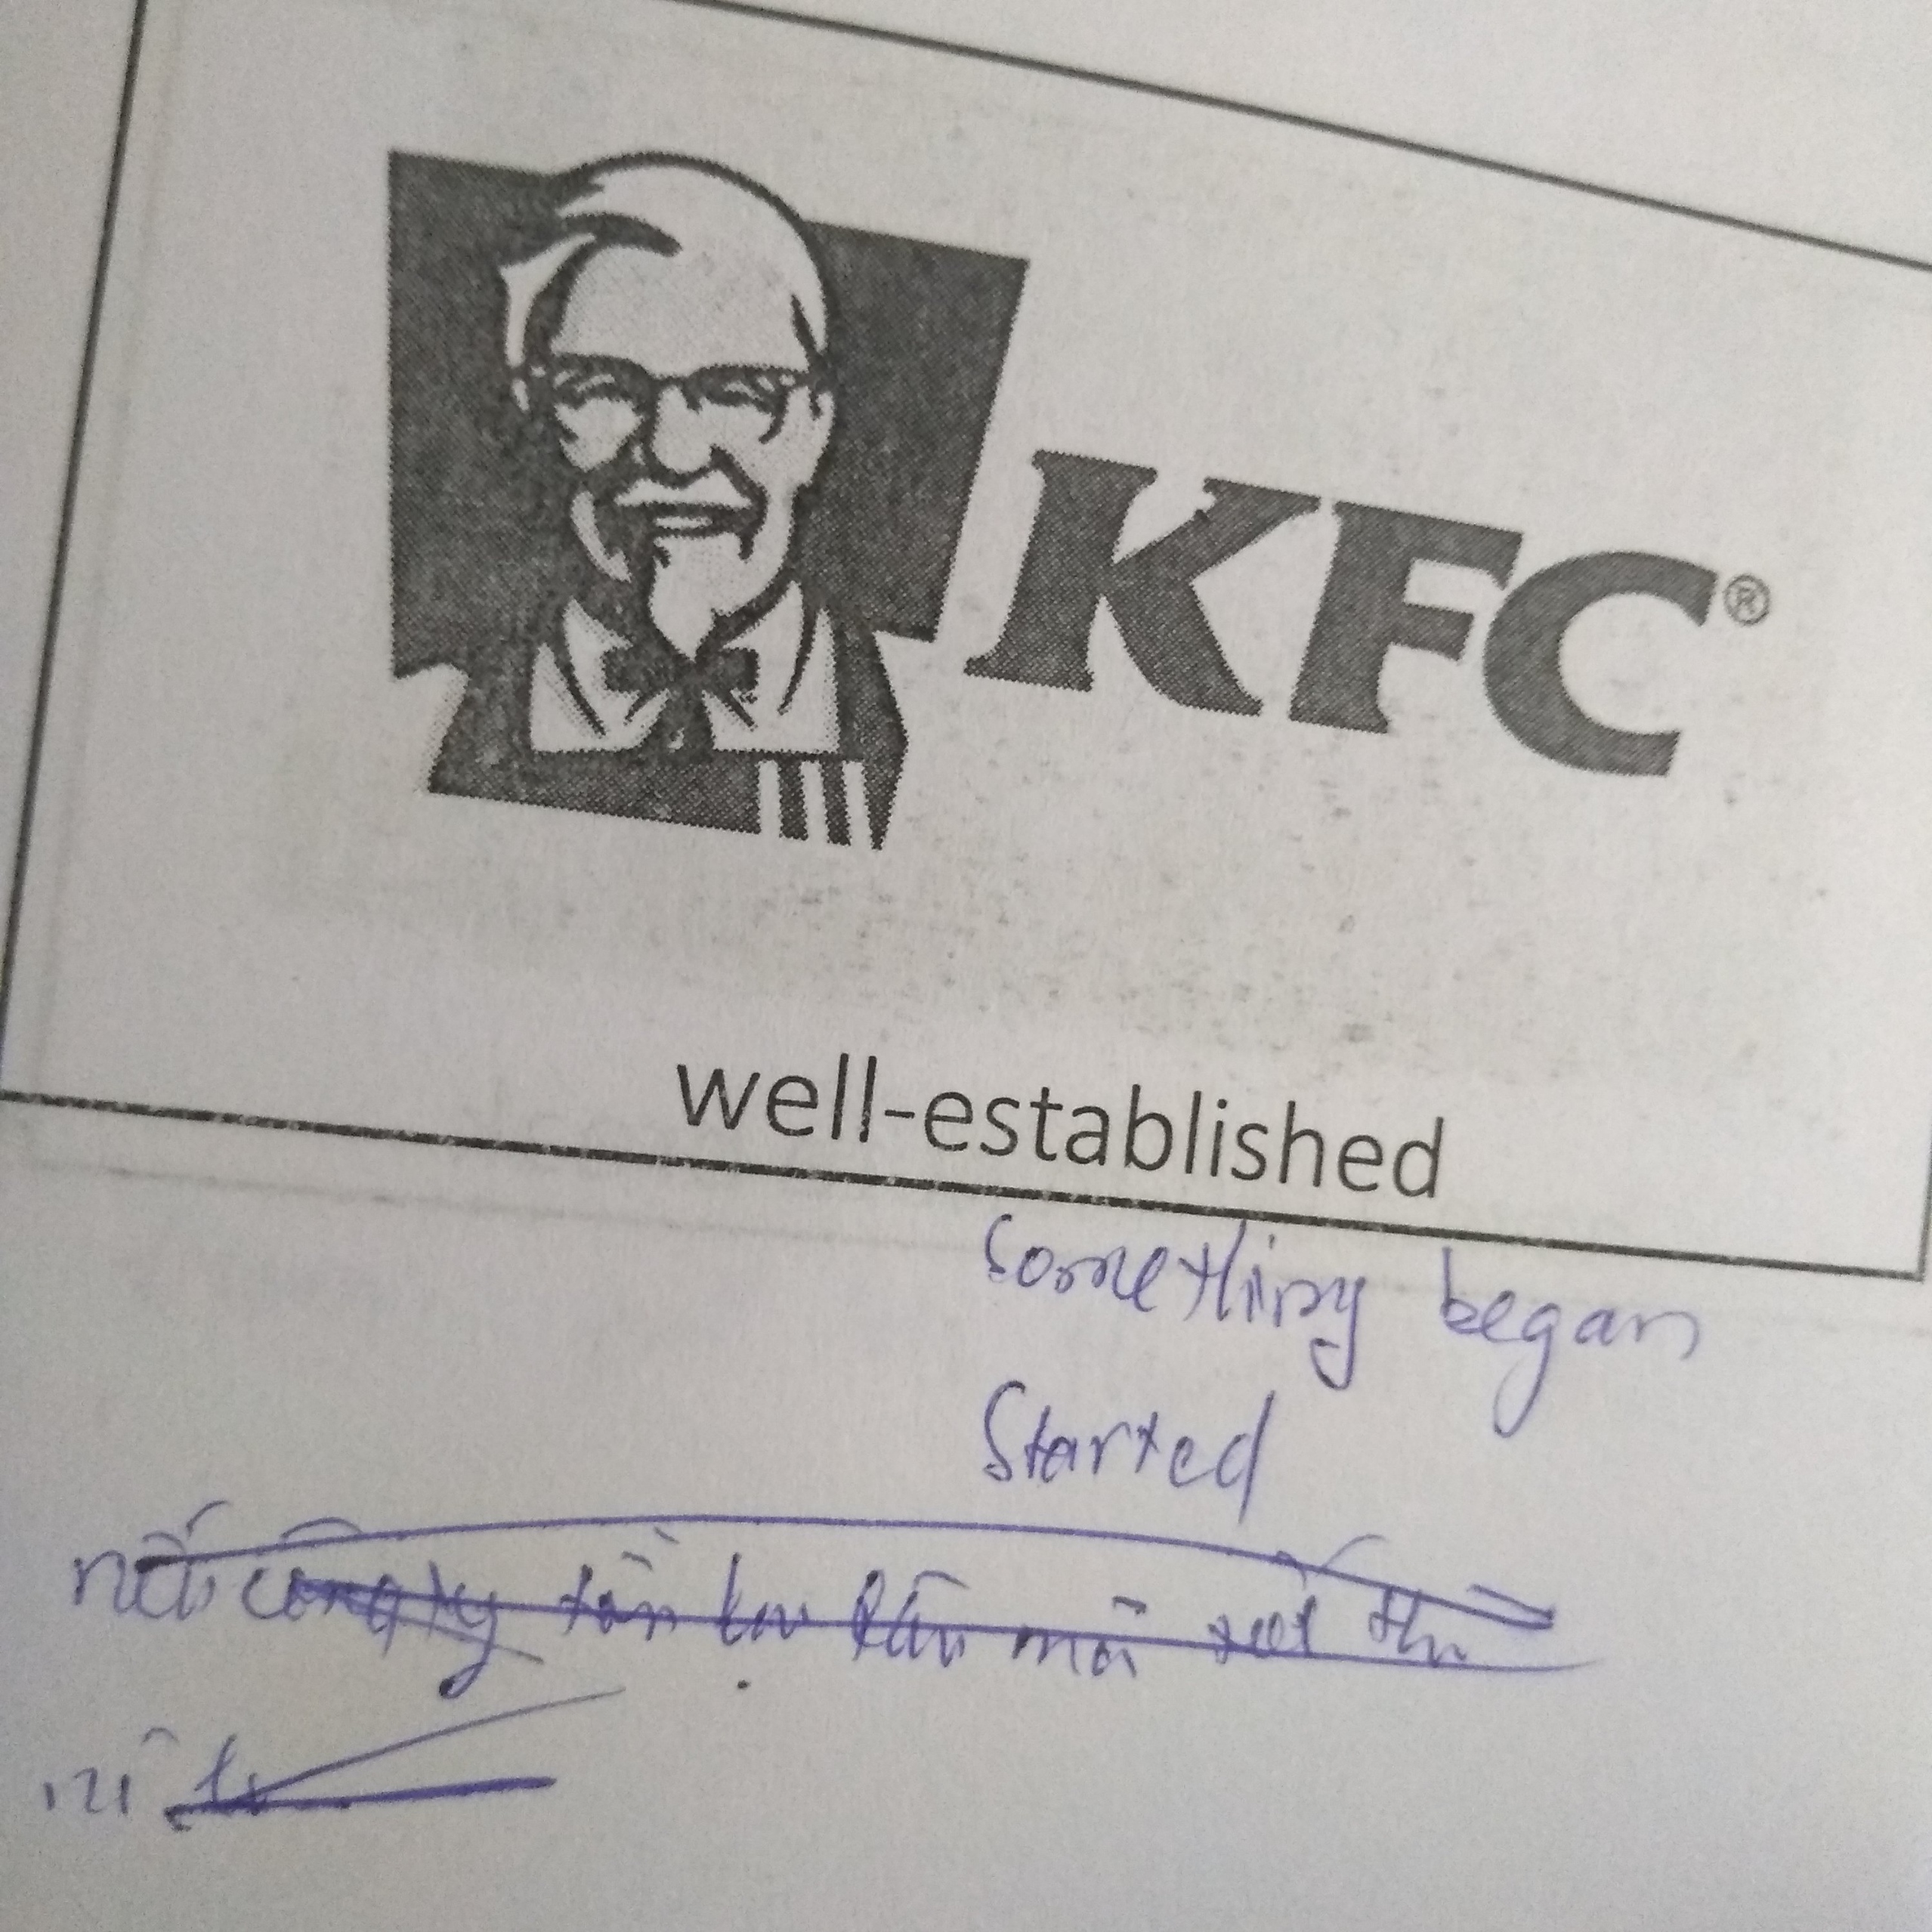 KFC®
well-established
something began
Started
nếu công ty tồn tại lâu mà